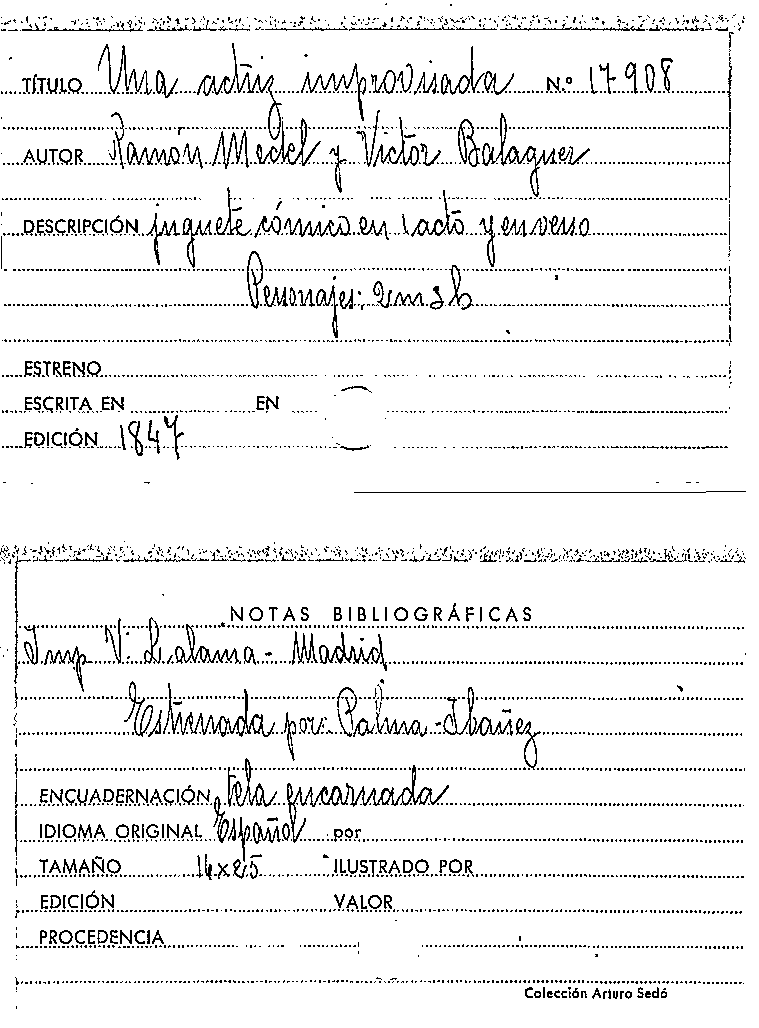 TÍTULO Una actriz improvisada N.º 17-908
AUTOR Ramón Medel y Victor Balaguer
DESCRIPCIÓN juguete cómico en 1 acto y en verso
Personajes: 2 m 3 h
ESTRENO
ESCRITA EN EN
EDICIÓN 1847
NOTAS BIBLIOGRÁFICAS
Imp V. Lalama - Madrid
Estrenada por: Palma - Ibañez
ENCUADERNACIÓN tela encarnada
IDIOMA ORIGINAL Español por
TAMAÑO 16 x 25 ILUSTRADO POR
EDICIÓN VALOR
PROCEDENCIA
Colección Arturo Sedó